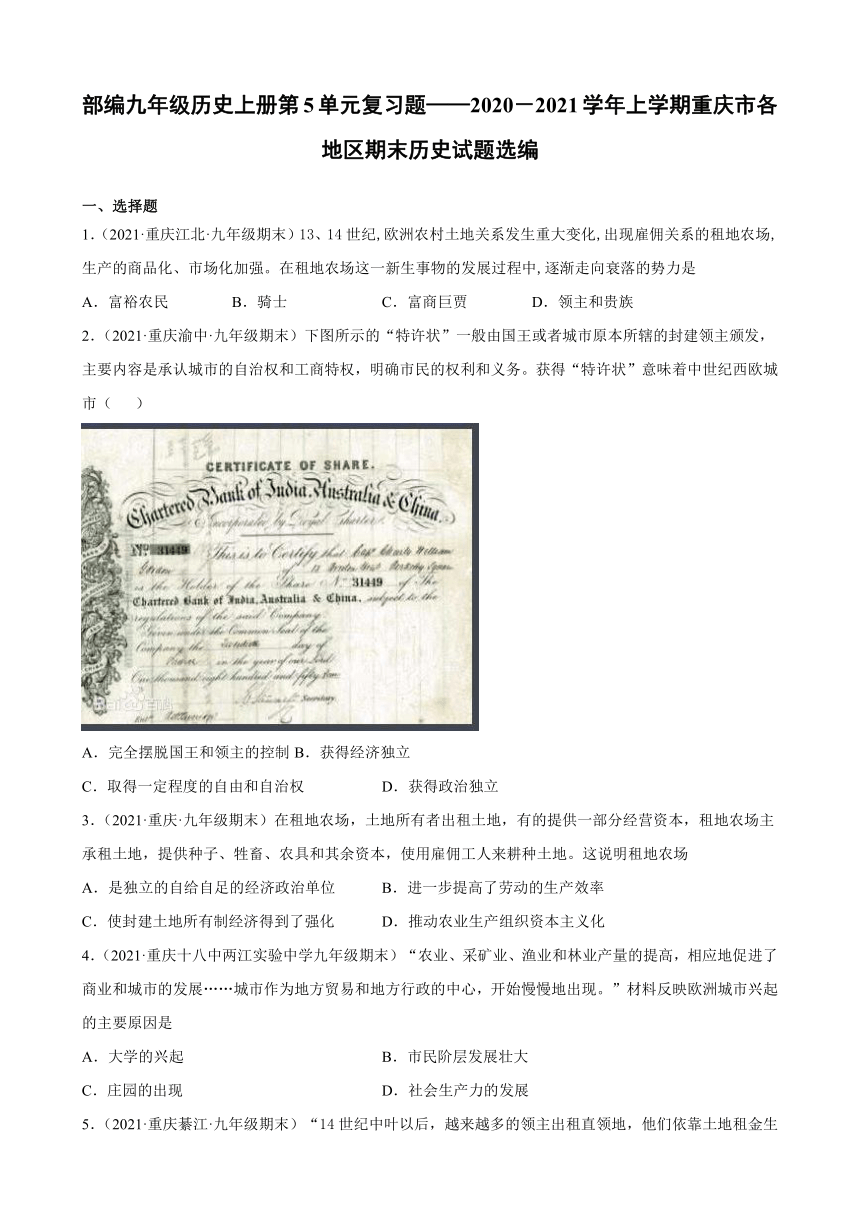 部编九年级历史上册第5单元复习题——2020－2021学年上学期重庆市各
地区期末历史试题选编
一、选择题
1.（2021·重庆江北·九年级期末）13、14世纪,欧洲农村土地关系发生重大变化,出现雇佣关系的租地农场,
生产的商品化、市场化加强。在租地农场这一新生事物的发展过程中,逐渐走向衰落的势力是
A．富裕农民 B．骑士 C．富商巨贾 D．领主和贵族
2.（2021·重庆渝中·九年级期末）下图所示的“特许状”一般由国王或者城市原本所辖的封建领主颁发，
主要内容是承认城市的自治权和工商特权，明确市民的权利和义务。获得“特许状”意味着中世纪西欧城
市（ ）
CERTIFICATE OF SHARE.
Chartered Bank of India, Australia & China.
Incorporated by Royal Charter.
No 31449 This is to Certify that William
of
is the Holder of the Share No. 31449 of The
Chartered Bank of India, Australia & China, subject to the
regulations of the said Company.
Given under the Common Seal of the
Company the day of
in the year of our Lord
One thousand eight hundred and fifty
Secretary
A．完全摆脱国王和领主的控制 B．获得经济独立
C．取得一定程度的自由和自治权 D．获得政治独立
3.（2021·重庆·九年级期末）在租地农场，土地所有者出租土地，有的提供一部分经营资本，租地农场主
承租土地，提供种子、牲畜、农具和其余资本，使用雇佣工人来耕种土地。这说明租地农场
A．是独立的自给自足的经济政治单位 B．进一步提高了劳动的生产效率
C．使封建土地所有制经济得到了强化 D．推动农业生产组织资本主义化
4.（2021·重庆十八中两江实验中学九年级期末）“农业、采矿业、渔业和林业产量的提高，相应地促进了
商业和城市的发展……城市作为地方贸易和地方行政的中心，开始慢慢地出现。”材料反映欧洲城市兴起
的主要原因是
A．大学的兴起 B．市民阶层发展壮大
C．庄园的出现 D．社会生产力的发展
5.（2021·重庆綦江·九年级期末）“14世纪中叶以后，越来越多的领主出租直领地，他们依靠土地租金生